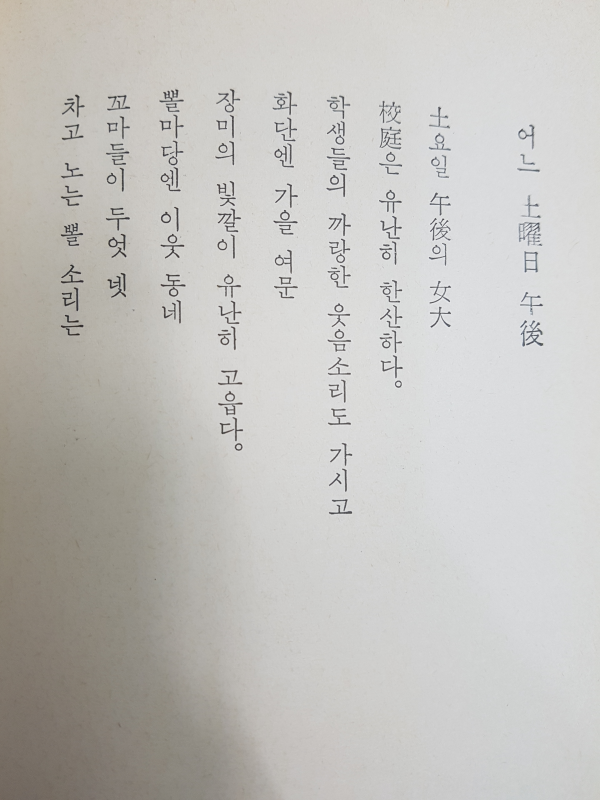 어느 土曜日 午後
土요일 午後의 女大
校庭은 유난히 한산하다。
학생들의 까랑한 웃음소리도 가시고
화단엔 가을 여문
장미의 빛깔이 유난히 고읍다。
뽈마당엔 이웃 동네
꼬마들이 두엇 넷
차고 노는 뽈 소리는